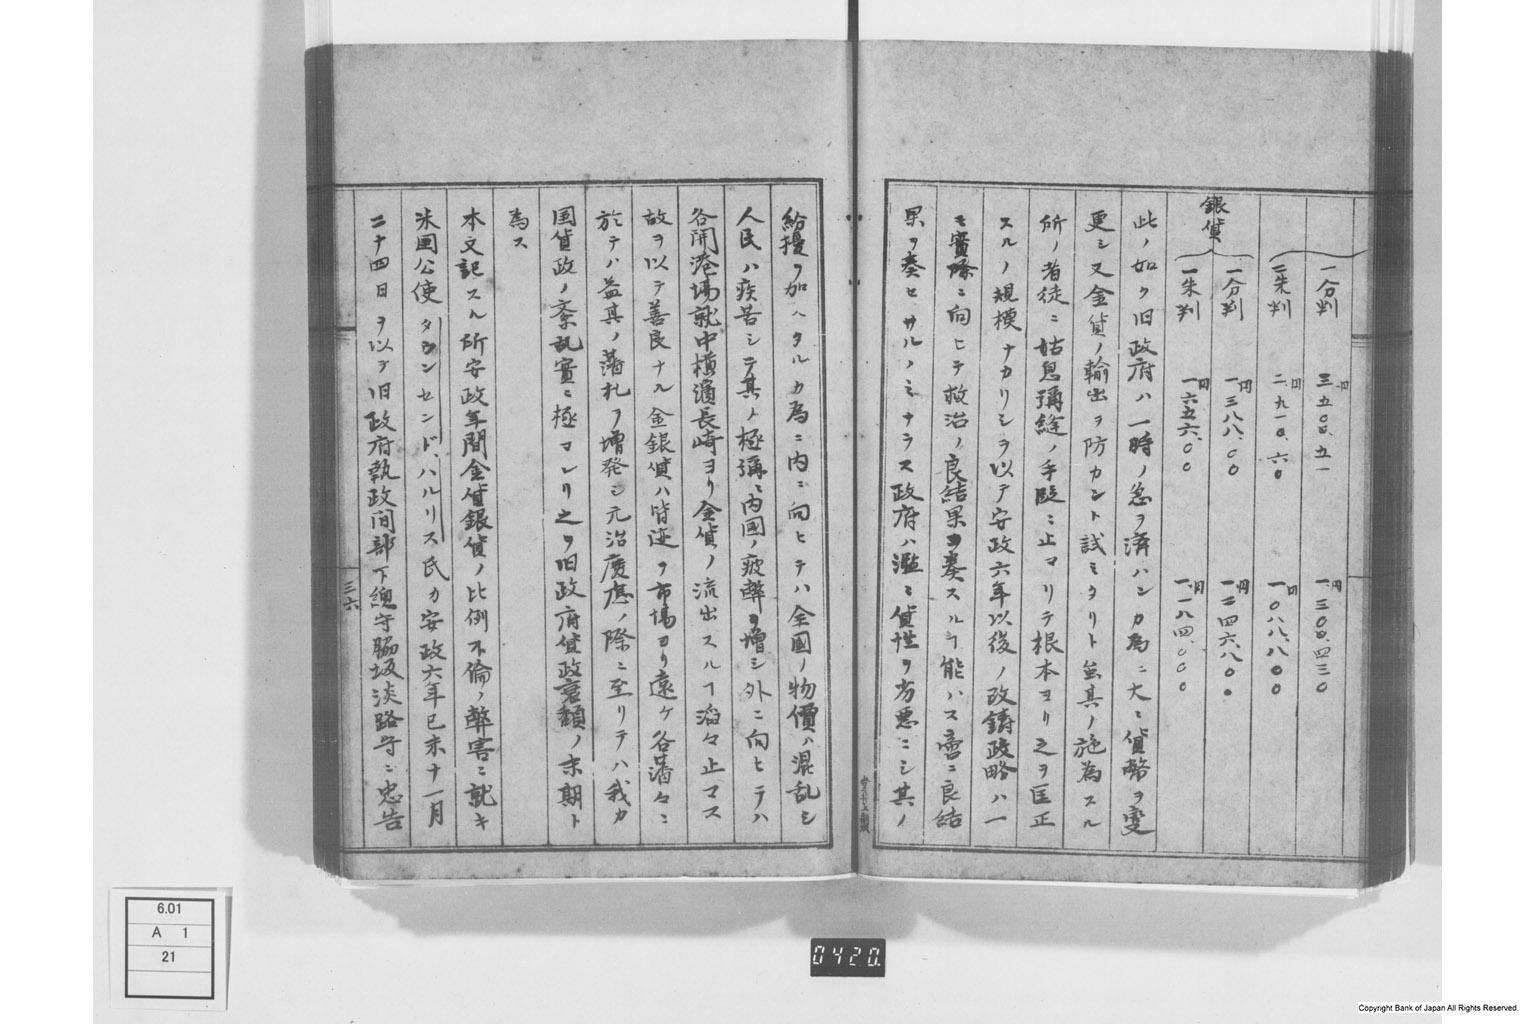 一分判 三五〇〇.五一 円 一.三〇〇.四三〇 円
二朱判 二.九一〇.六〇 円 一.〇八八.八〇〇 円
銀貨
一分判 一.三八八.〇〇 円 一.二四六.八〇〇 円
一朱判 一.六五六.〇〇 円 一.一八四.〇〇〇 円
此ノ如ク旧政府ハ一時ノ急ヲ済ハンカ為ニ大ニ貨幣ヲ変
更シ又金貨ノ輸出ヲ防カント試ミタリト虽其ノ施為スル
所ノ者徒ニ姑息彌縫ノ手段ニ止マリテ根本ヨリ之ヲ匡正
スルノ規模ナカリシヲ以テ安政六年以後ノ改鋳政略ハ一
モ實際ニ向ヒテ救治ノ良結果ヲ奏スルヿ能ハス啻ニ良結
果ヲ奏セサルノミナラス政府ハ濫ニ貨性ヲ劣悪ニシ其ノ
紛擾ヲ加ヘタルカ為ニ内ニ向ヒテハ全國ノ物價ハ混乱シ
人民ハ疾苦シテ其ノ極彌ニ内國ノ疲弊ヲ増シ外ニ向ヒテハ
各開港場就中横濱長崎ヨリ金貨ノ流出スルヿ滔々止マス
故ヲ以テ善良ナル金銀貨ハ皆迹ヲ市場ヨリ遠ケ各藩々ニ
於テハ益其ノ藩札ヲ増発シ元治慶應ノ際ニ至リテハ我カ
国貨政ノ紊乱實ニ極マレリ之ヲ旧政府貨政衰頽ノ末期ト
為ス
本文記スル所安政年間金貨銀貨ノ比例不倫ノ弊害ニ就キ
米國公使タウンセンド、ハルリス氏カ安政六年已未十一月
二十四日ヲ以テ旧政府執政间部下總守脇坂淡路守ニ忠告
三六
0420.
6.01
A 1
21
Copyright Bank of Japan All Rights Reserved.